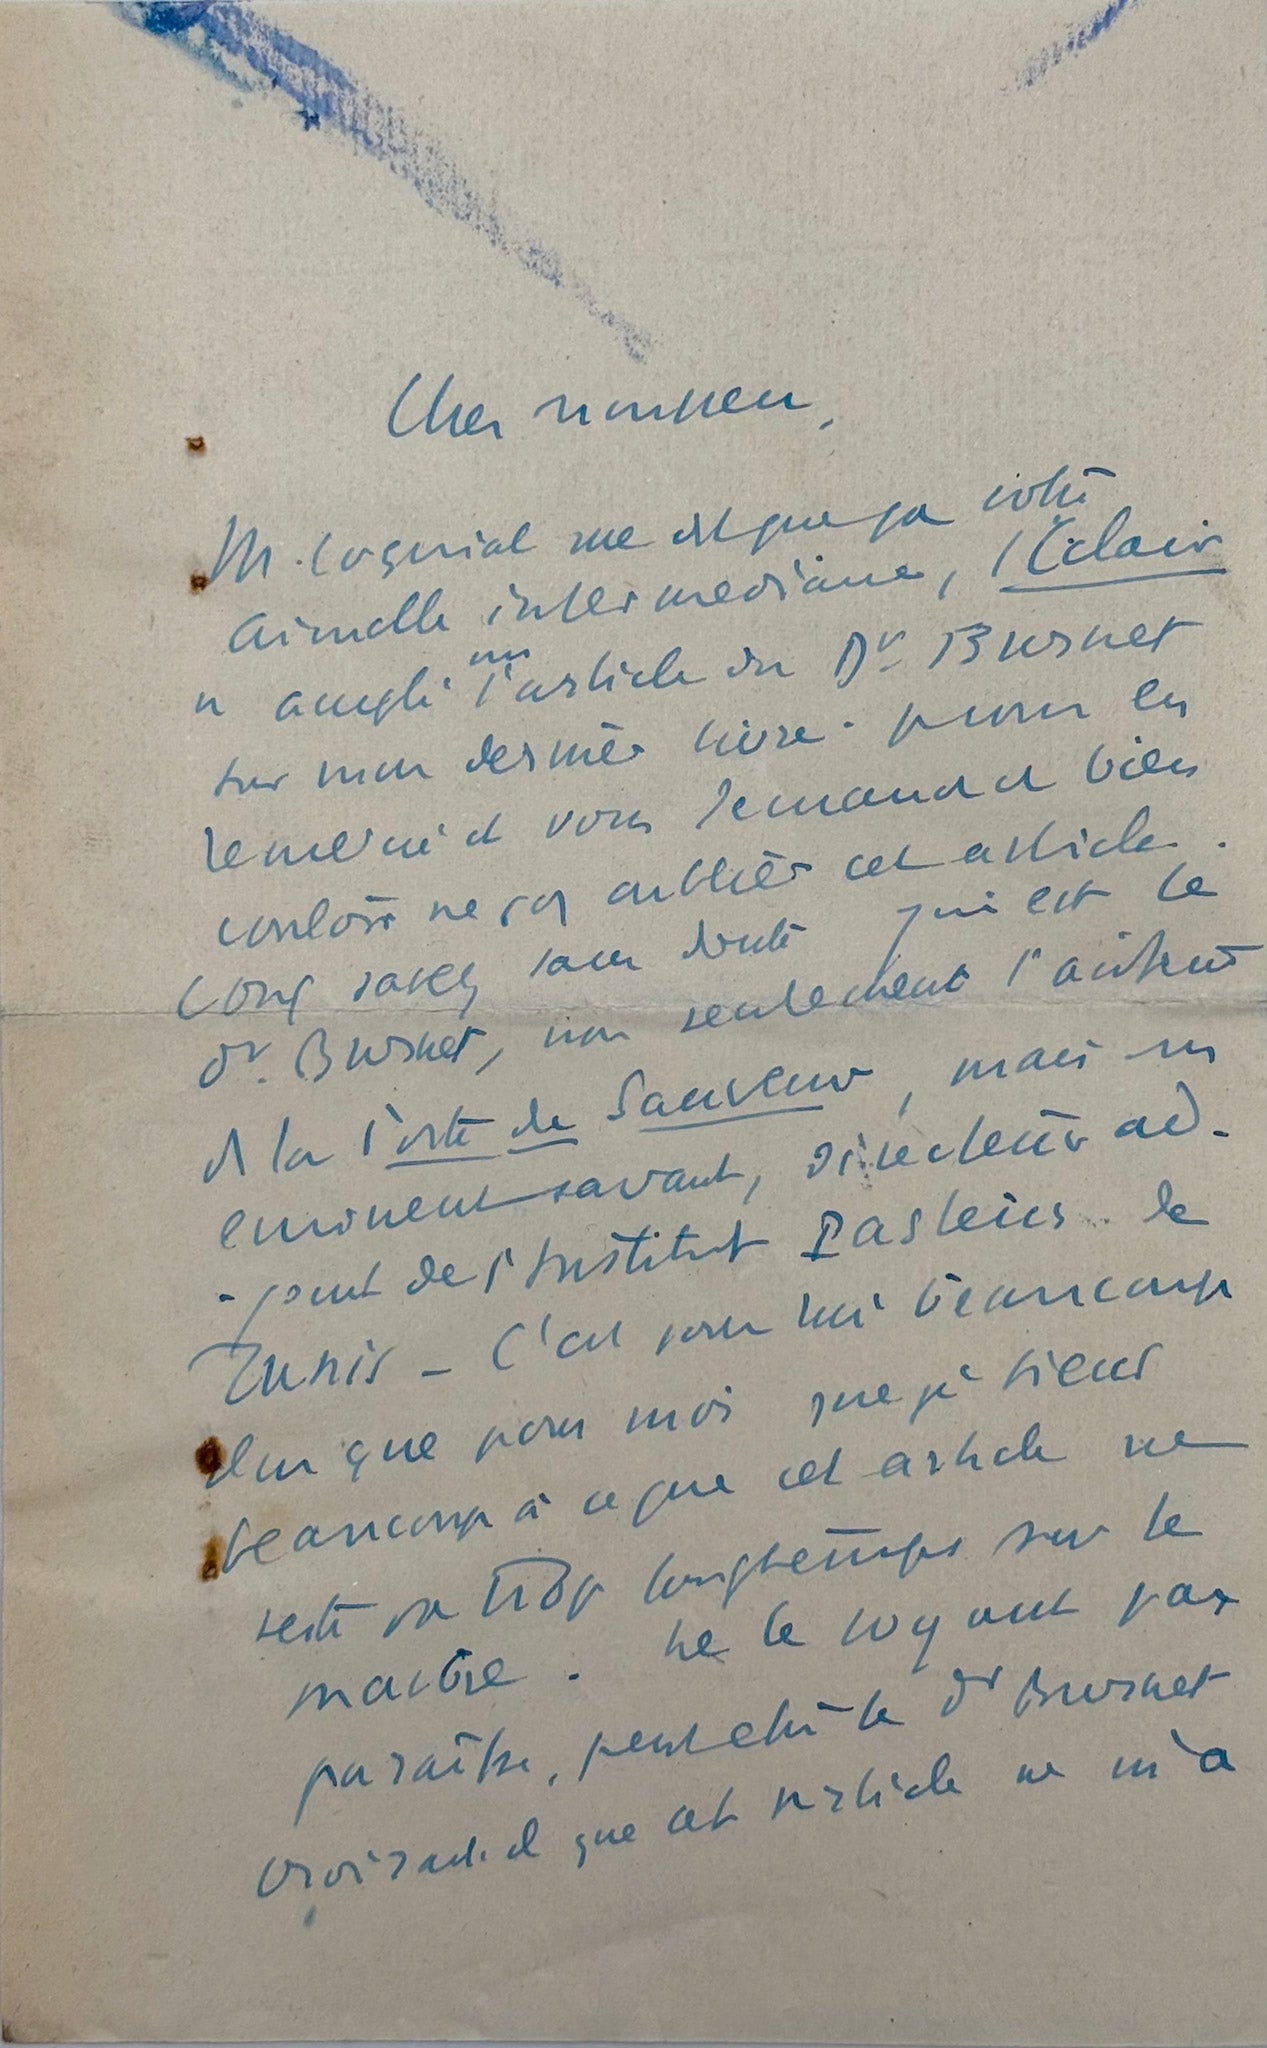 Cher monsieur,
M. me dit que par votre
aimable intermediaire, l'Eclair
a accepté un article du Dr. Burnet
sur mon dernier livre.
remercie et vous demande de bien
vouloir ne pas oublier cet article.
Vous savez sans doute qui est le
dr. Burnet, non seulement l'auteur
de la Porte du Sauveur, mais un
eminent savant, directeur ad-
-joint de l'Institut Pasteur de
Tunis – C'est pour lui beaucoup
plus que pour moi que je tiens
beaucoup à ce que cet article ne
reste pas trop longtemps sur le
marbre. Ne le voyant pas
paraître, peut etre le dr Burnet
croirait-il que cet article ne m'a